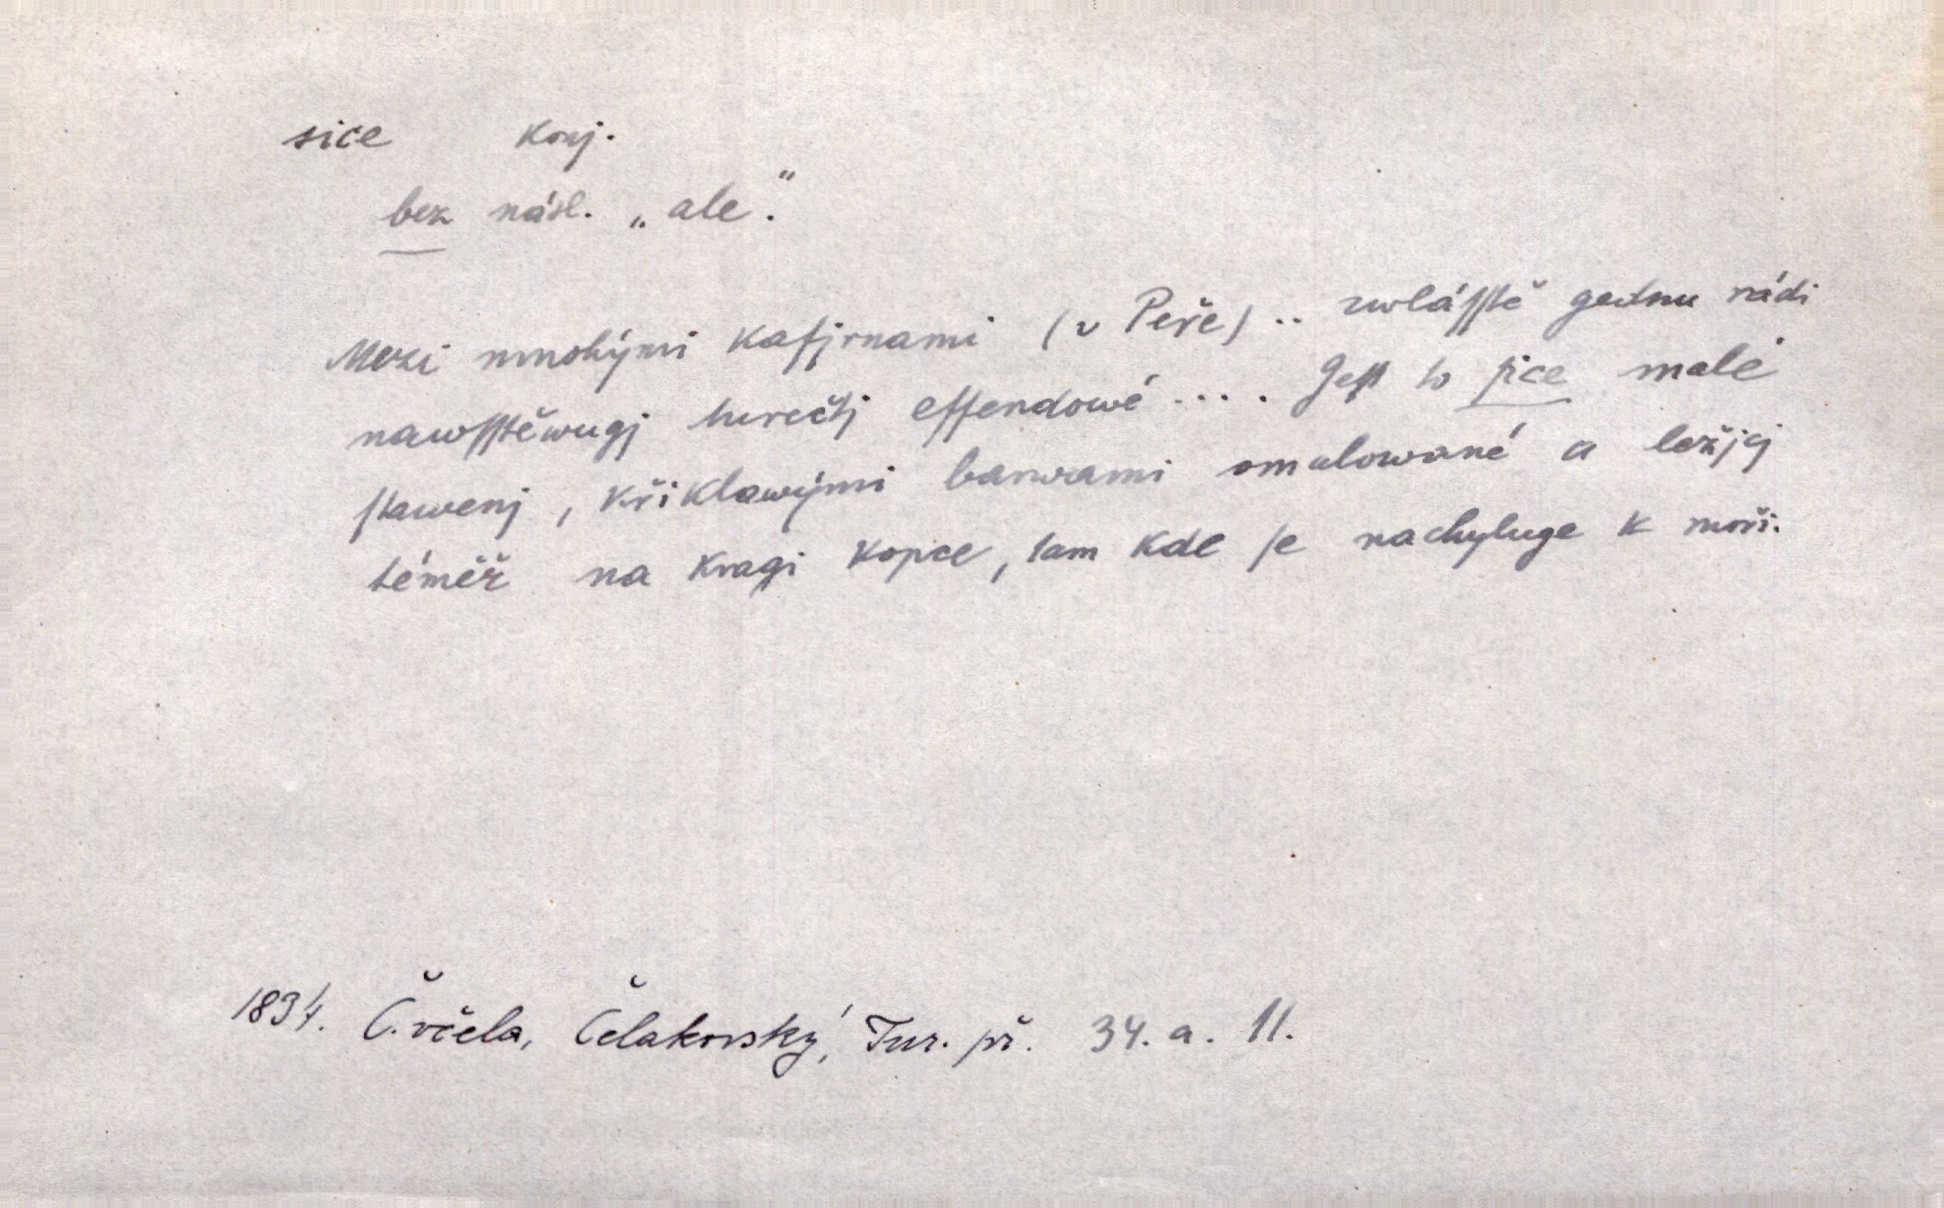 sice konj.
bez násl. „ale."
Mezi mnohými kafjrnami (v Peře) .. zwlásstě gednu rádi
nawsstěwugj turečtj effendowé .... Gest to sice malé
stawenj, křiklawými barwami omalowané a ležjcj
téměř na kragi kopce, tam kde se nachyluge k moři.
1834. Č. včela, Čelakovský, Tur. př. 34. a. 11.